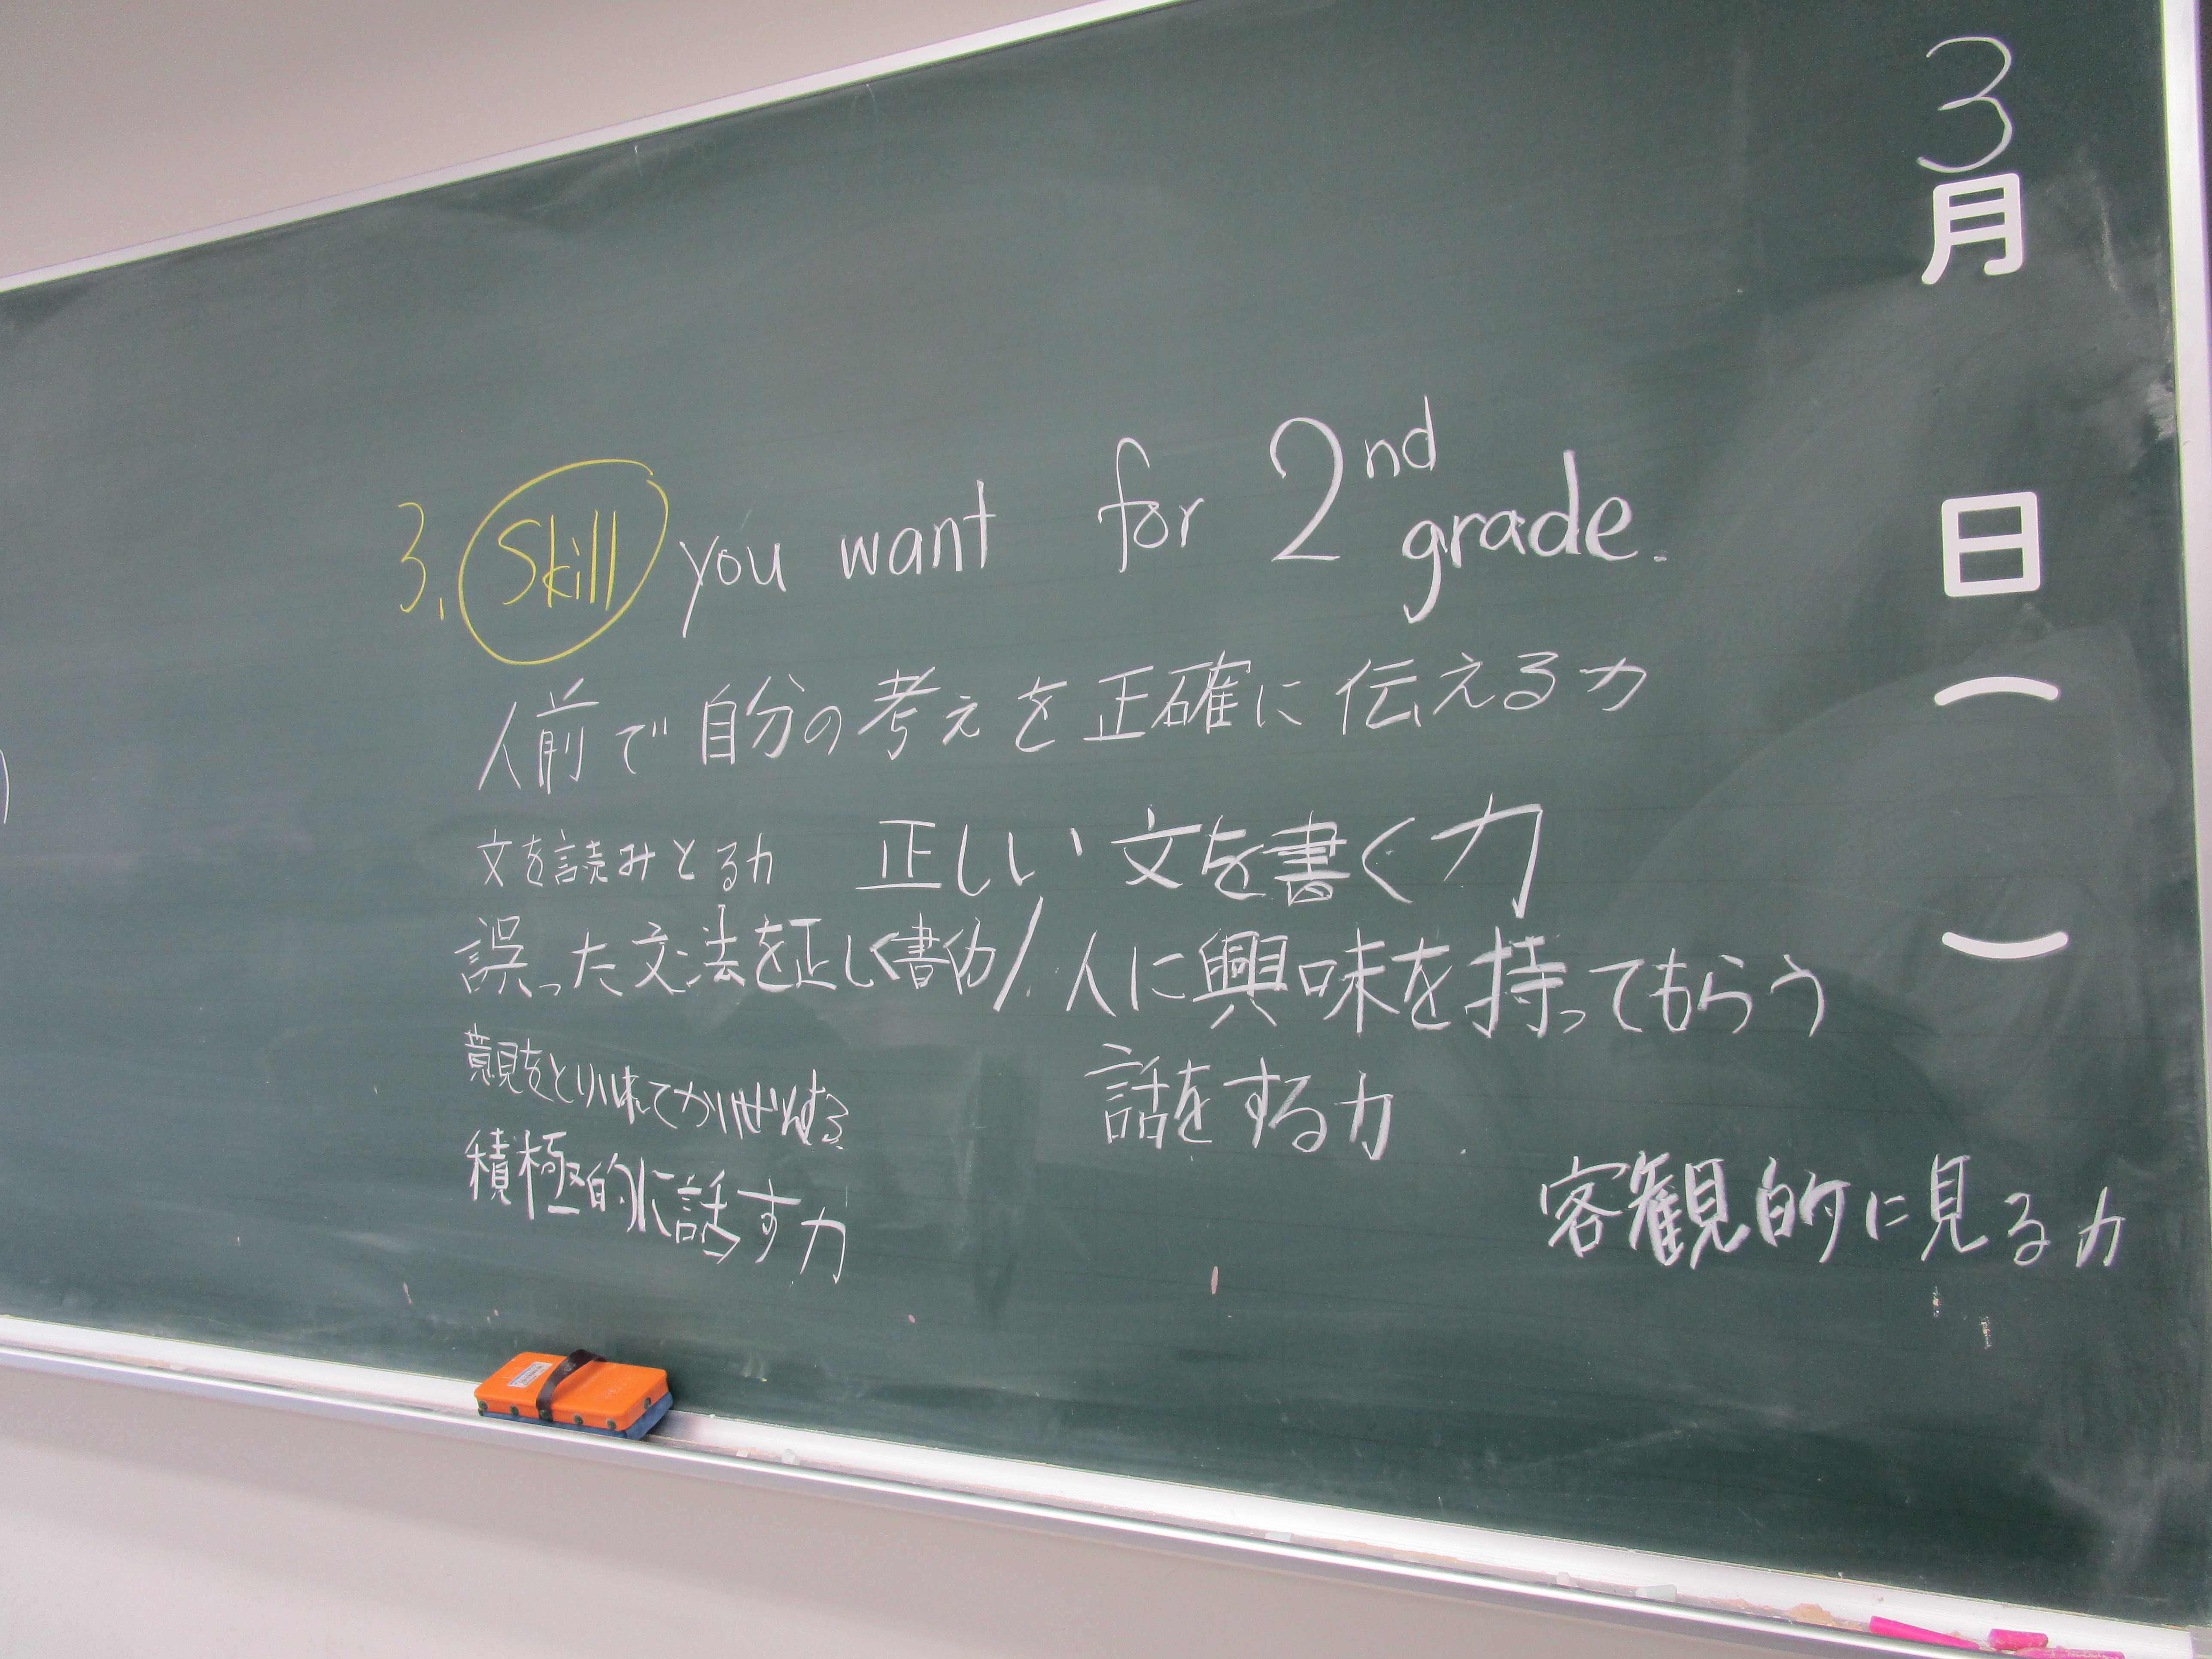 3. Skill you want for 2nd grade.
人前で自分の考えを正確に伝える力
文を読みとる力 正しい文を書く力
誤った文法を正しく書く力/人に興味を持ってもらう
話をする力
意見をとり
積極的に話す力
客観的に見る力
3月 日( )